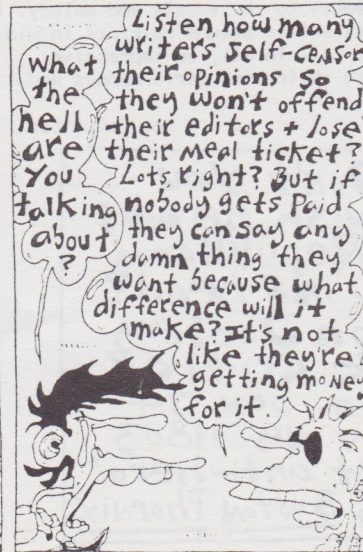 What
the
hell
are
you
talking
about
?
Listen, how many
writers self-censor
their opinions so
they won't offend
their editors + lose
their meal ticket?
Lots, right? But if
nobody gets paid
they can say any
damn thing they
want because what
difference will it
make? It's not
like they're
getting money
for it.